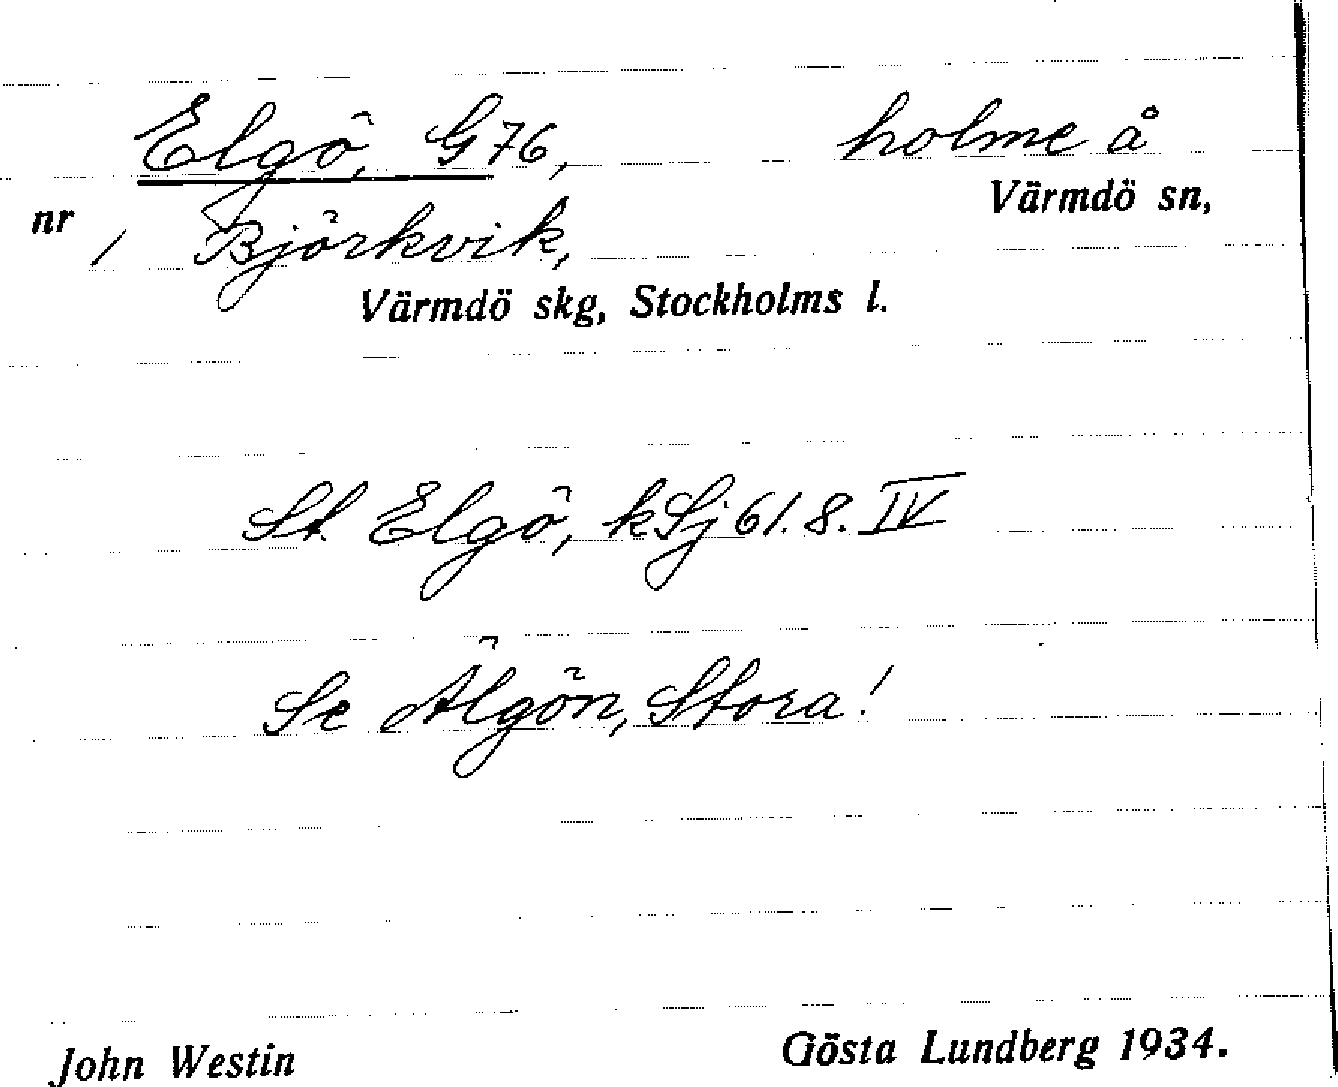 Elgö, G76, holme å
Värmdö sn,
nr / Björkvik,
Värmdö skg, Stockholms l.
St. Elgö, kSj 61. 8. IV
Se Älgön, Stora!
John Westin Gösta Lundberg 1934.